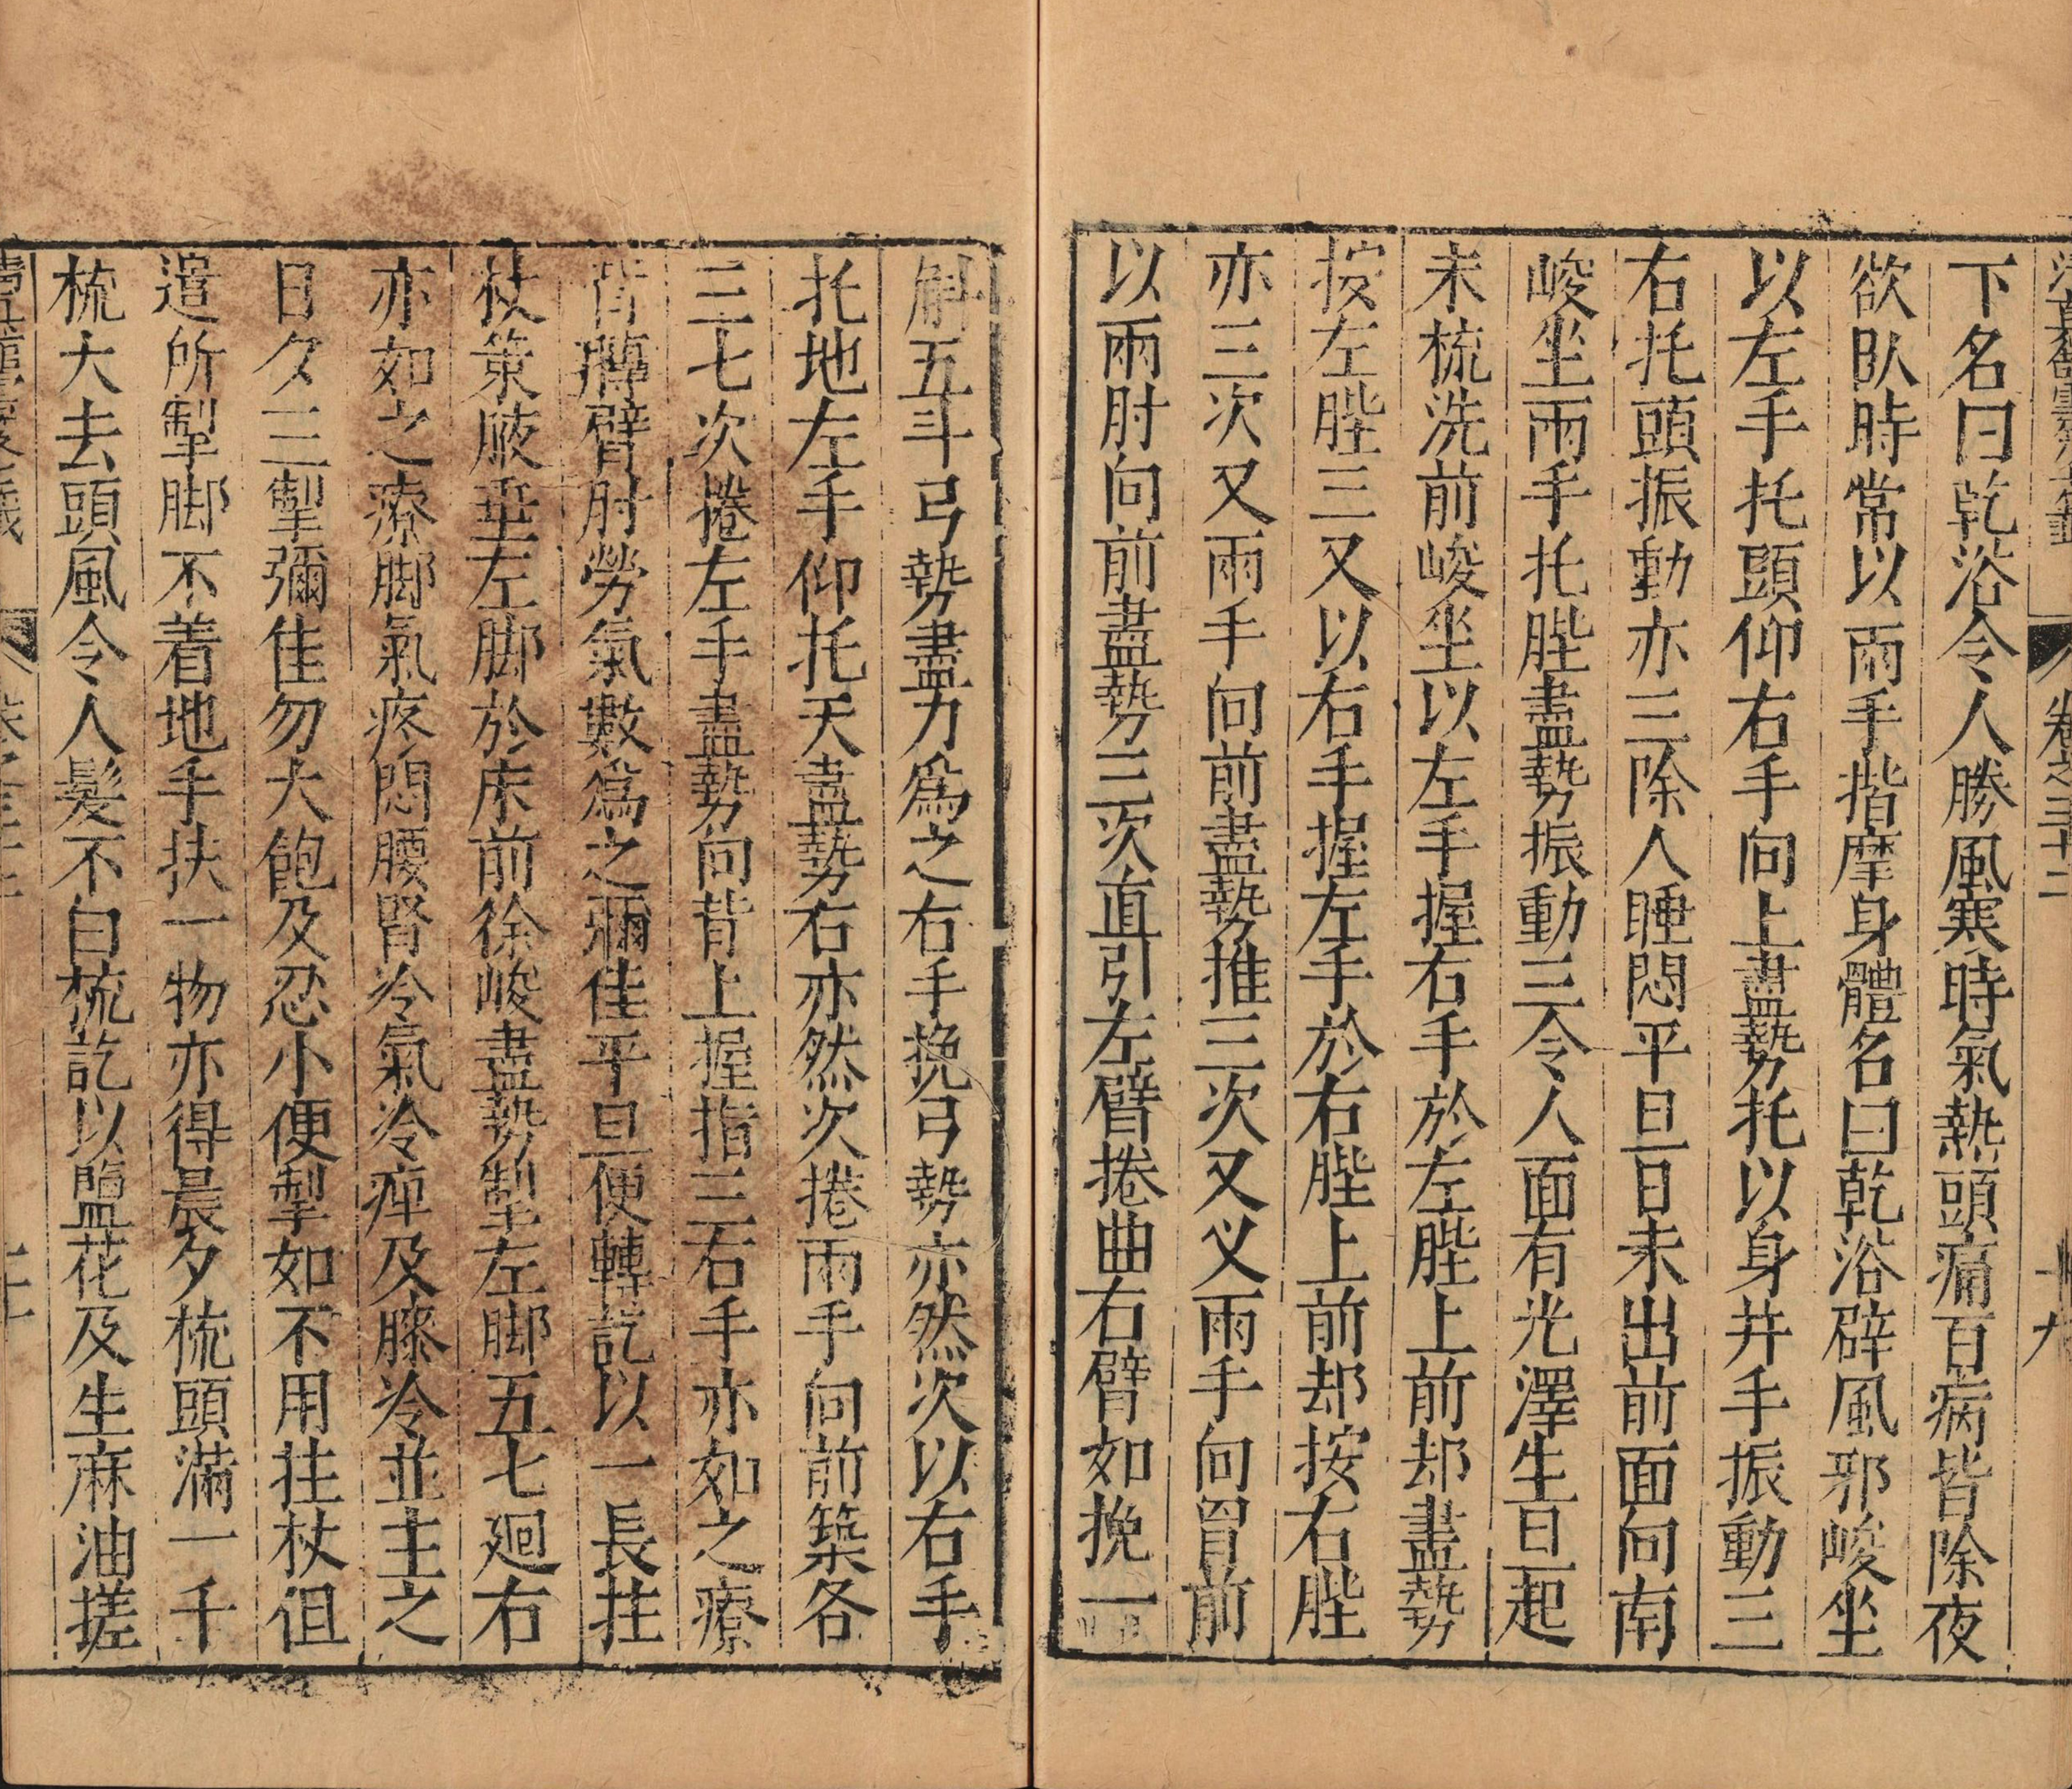 卷之三十二
十九
下名曰乾浴令人勝風寒時氣熱頭痛百病皆除夜
欲臥時常以兩手揩摩身體名曰乾浴辟風邪峻坐
以左手托頭仰右手向上盡勢托以身并手振動三
右托頭振動亦三除人睡悶平旦日未出前面向南
峻坐兩手托䏶盡勢振動三令人面有光澤生旦起
未梳洗前峻坐以左手握右手於左䏶上前却盡勢
按左䏶三又以右手握左手於右䏶上前却按右䏶
亦三次又兩手向前盡勢推三次又义兩手向胷前
以兩肘向前盡勢三次直引左臂捲曲右臂如挽一
斛五斗弓勢盡力爲之右手挽弓勢亦然次以右手
托地左手仰托天盡勢右亦然次捲兩手向前築各
三七次捲左手盡勢向背上握指三右手亦如之療
背膊臂肘勞氣數爲之彌佳平旦便轉訖以一長拄
杖策腋垂左脚於床前徐峻盡勢掣左脚五七廻右
亦如之療脚氣疼悶腰腎冷氣冷痺及膝冷並主之
日夕三掣彌佳勿大飽及忍小便掣如不用拄杖但
遣所掣脚不着地手扶一物亦得晨夕梳頭滿一千
梳大去頭風令人髮不白梳訖以鹽花及生麻油搓